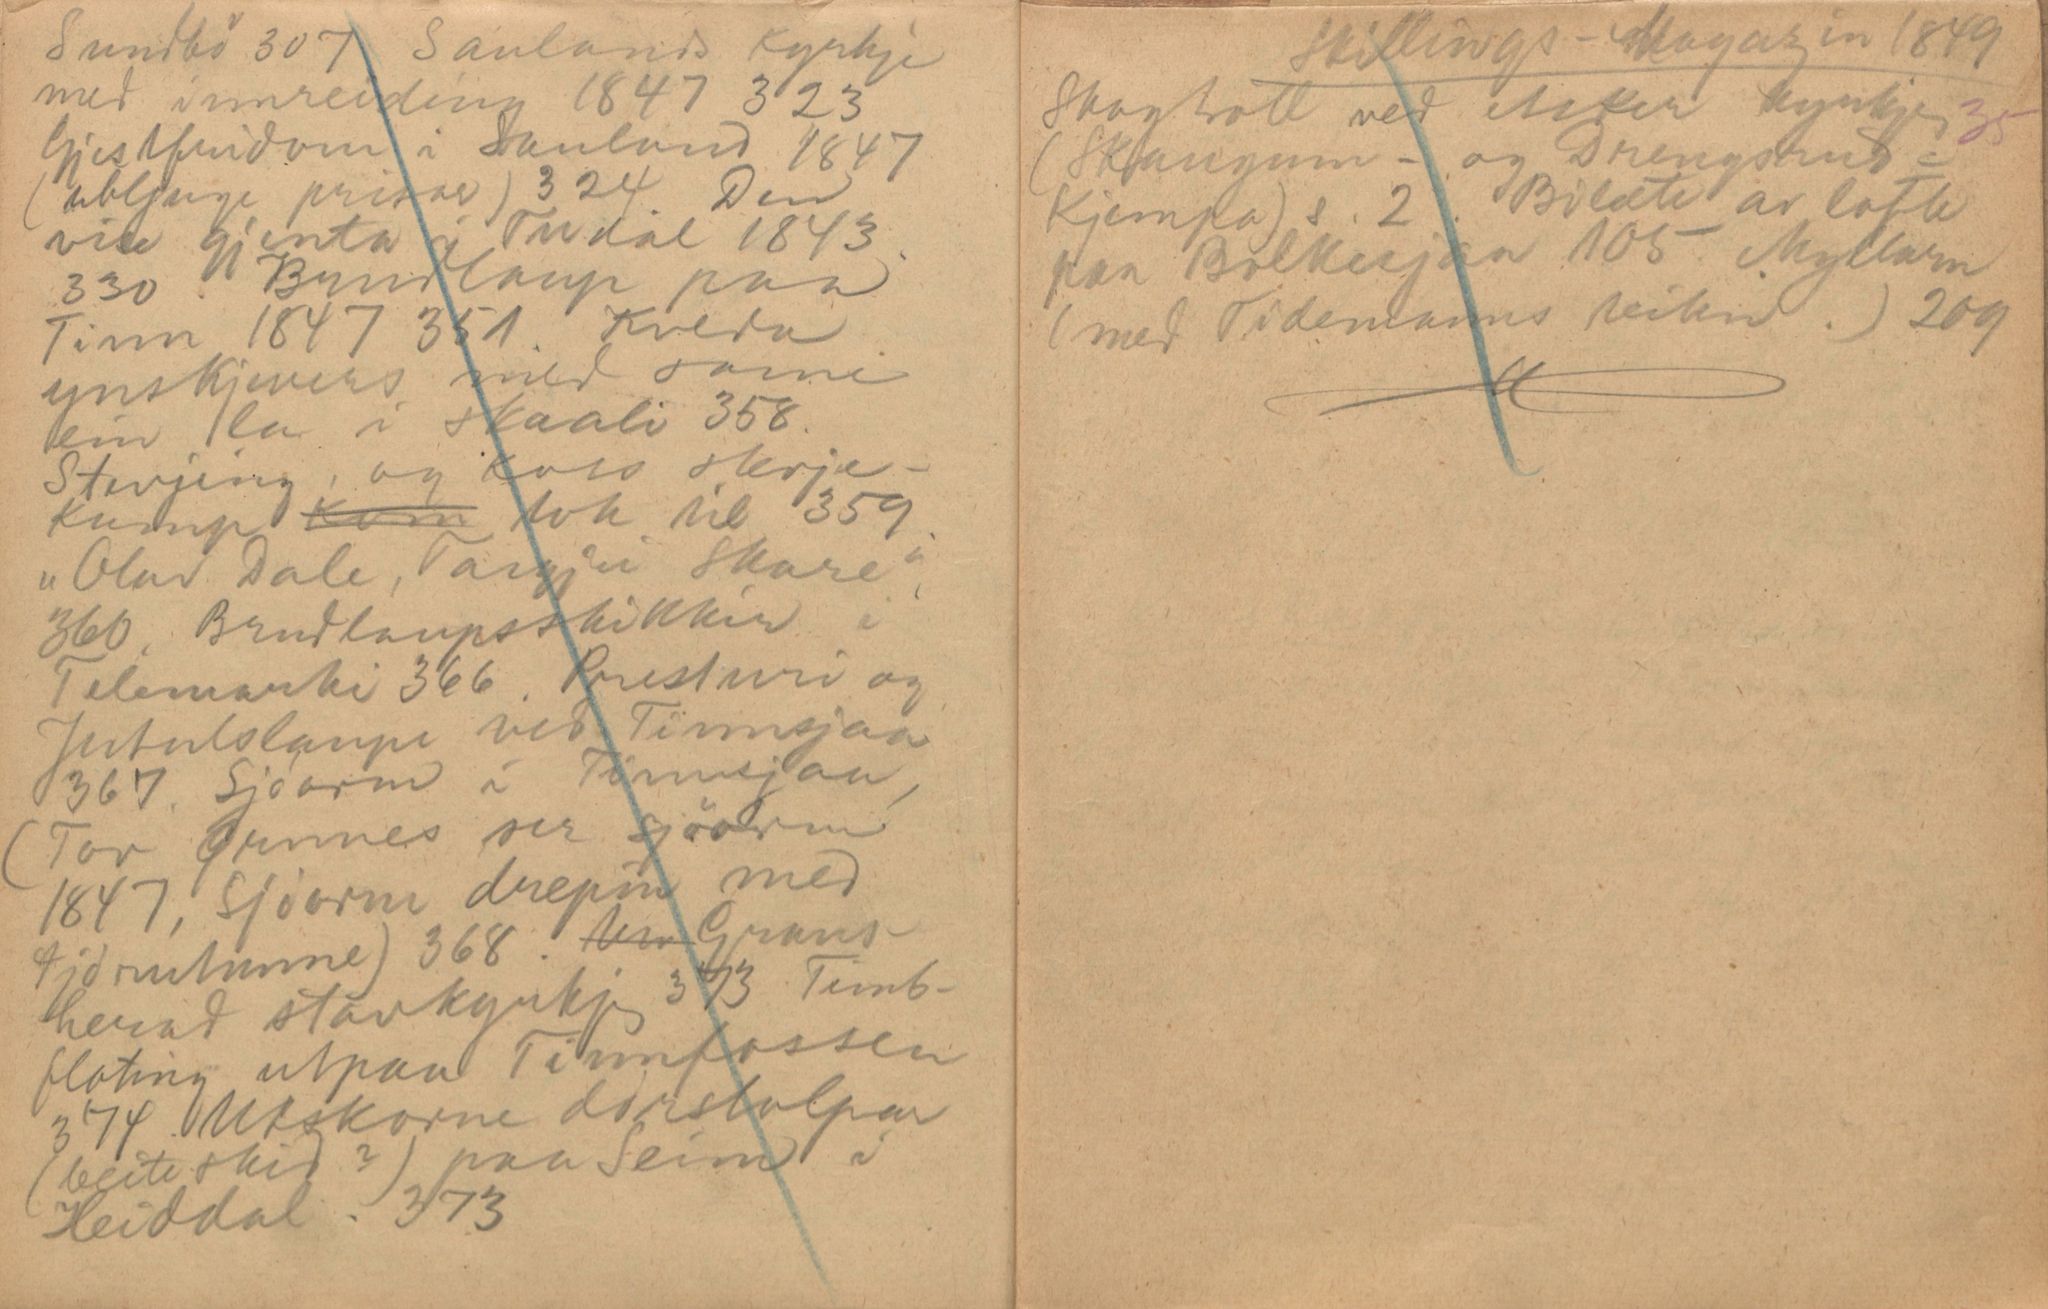 Sundbö 307 Saulands Kyrkje
med innreiding 1847 323
Gjestfridom i Sauland 1847
(ubljuge prisar) 324. Den
vise gjenta i Tudal 1843.
330. Brudlaup paa
Tinn 1847 351. Kveda
ynskjevers med same
ein la i skaali 358.
Stevjeing, og koss stevje-
kamp kom tok til 359.
"Olav Dale, Targjei Skare".
360. Brudlaupsskikkir i
Telemarki 366. Presturi og
Jutulslaupe ved Tinnsjaa
367. Sjöorm i Tinnsjaa,
(Tov Grunnes ser sjöorm
1847, Sjöorm drepin med
tjörutunne) 368. Grans-
herad stavkyrkje 373 Timb-
floting utpaa Tinnfossen
374. Utskorne dörstolpar
(beiteskid?) paa Seim i
Heiddal. 373
Skillings-Magazin 1849
Skogtroll ved Asker kyrkje, 35
(Skaugum- og Drengsrud-
Kjempa) s. 2. Bilæte av lofte
paa Bolkesjaa 105. Myllarn
(med Tidemanns teikn.) 209